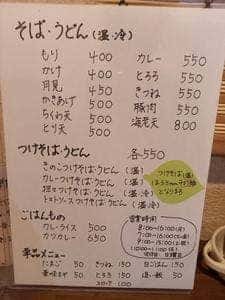 そば・うどん (温・冷)
もり 400
かけ 400
月見 450
かきあげ 500
ちくわ天 500
とり天 500
カレー 550
とろろ 550
きつね 550
豚肉 550
海老天 800
つけそば・うどん 各550
きのこつけそば・うどん (温)
カレーつけそば・うどん (温)
担々つけそば・うどん (温・冷)
トマトソースつけそば・うどん (温・冷)
つけそば(温)
となります
ごはんもの
カレーライス 500
カツカレー 650
営業時間
8:00~16:00(月)
単品メニュー
たまご 50
きつね 150
とろろ 150
白ごはん 150